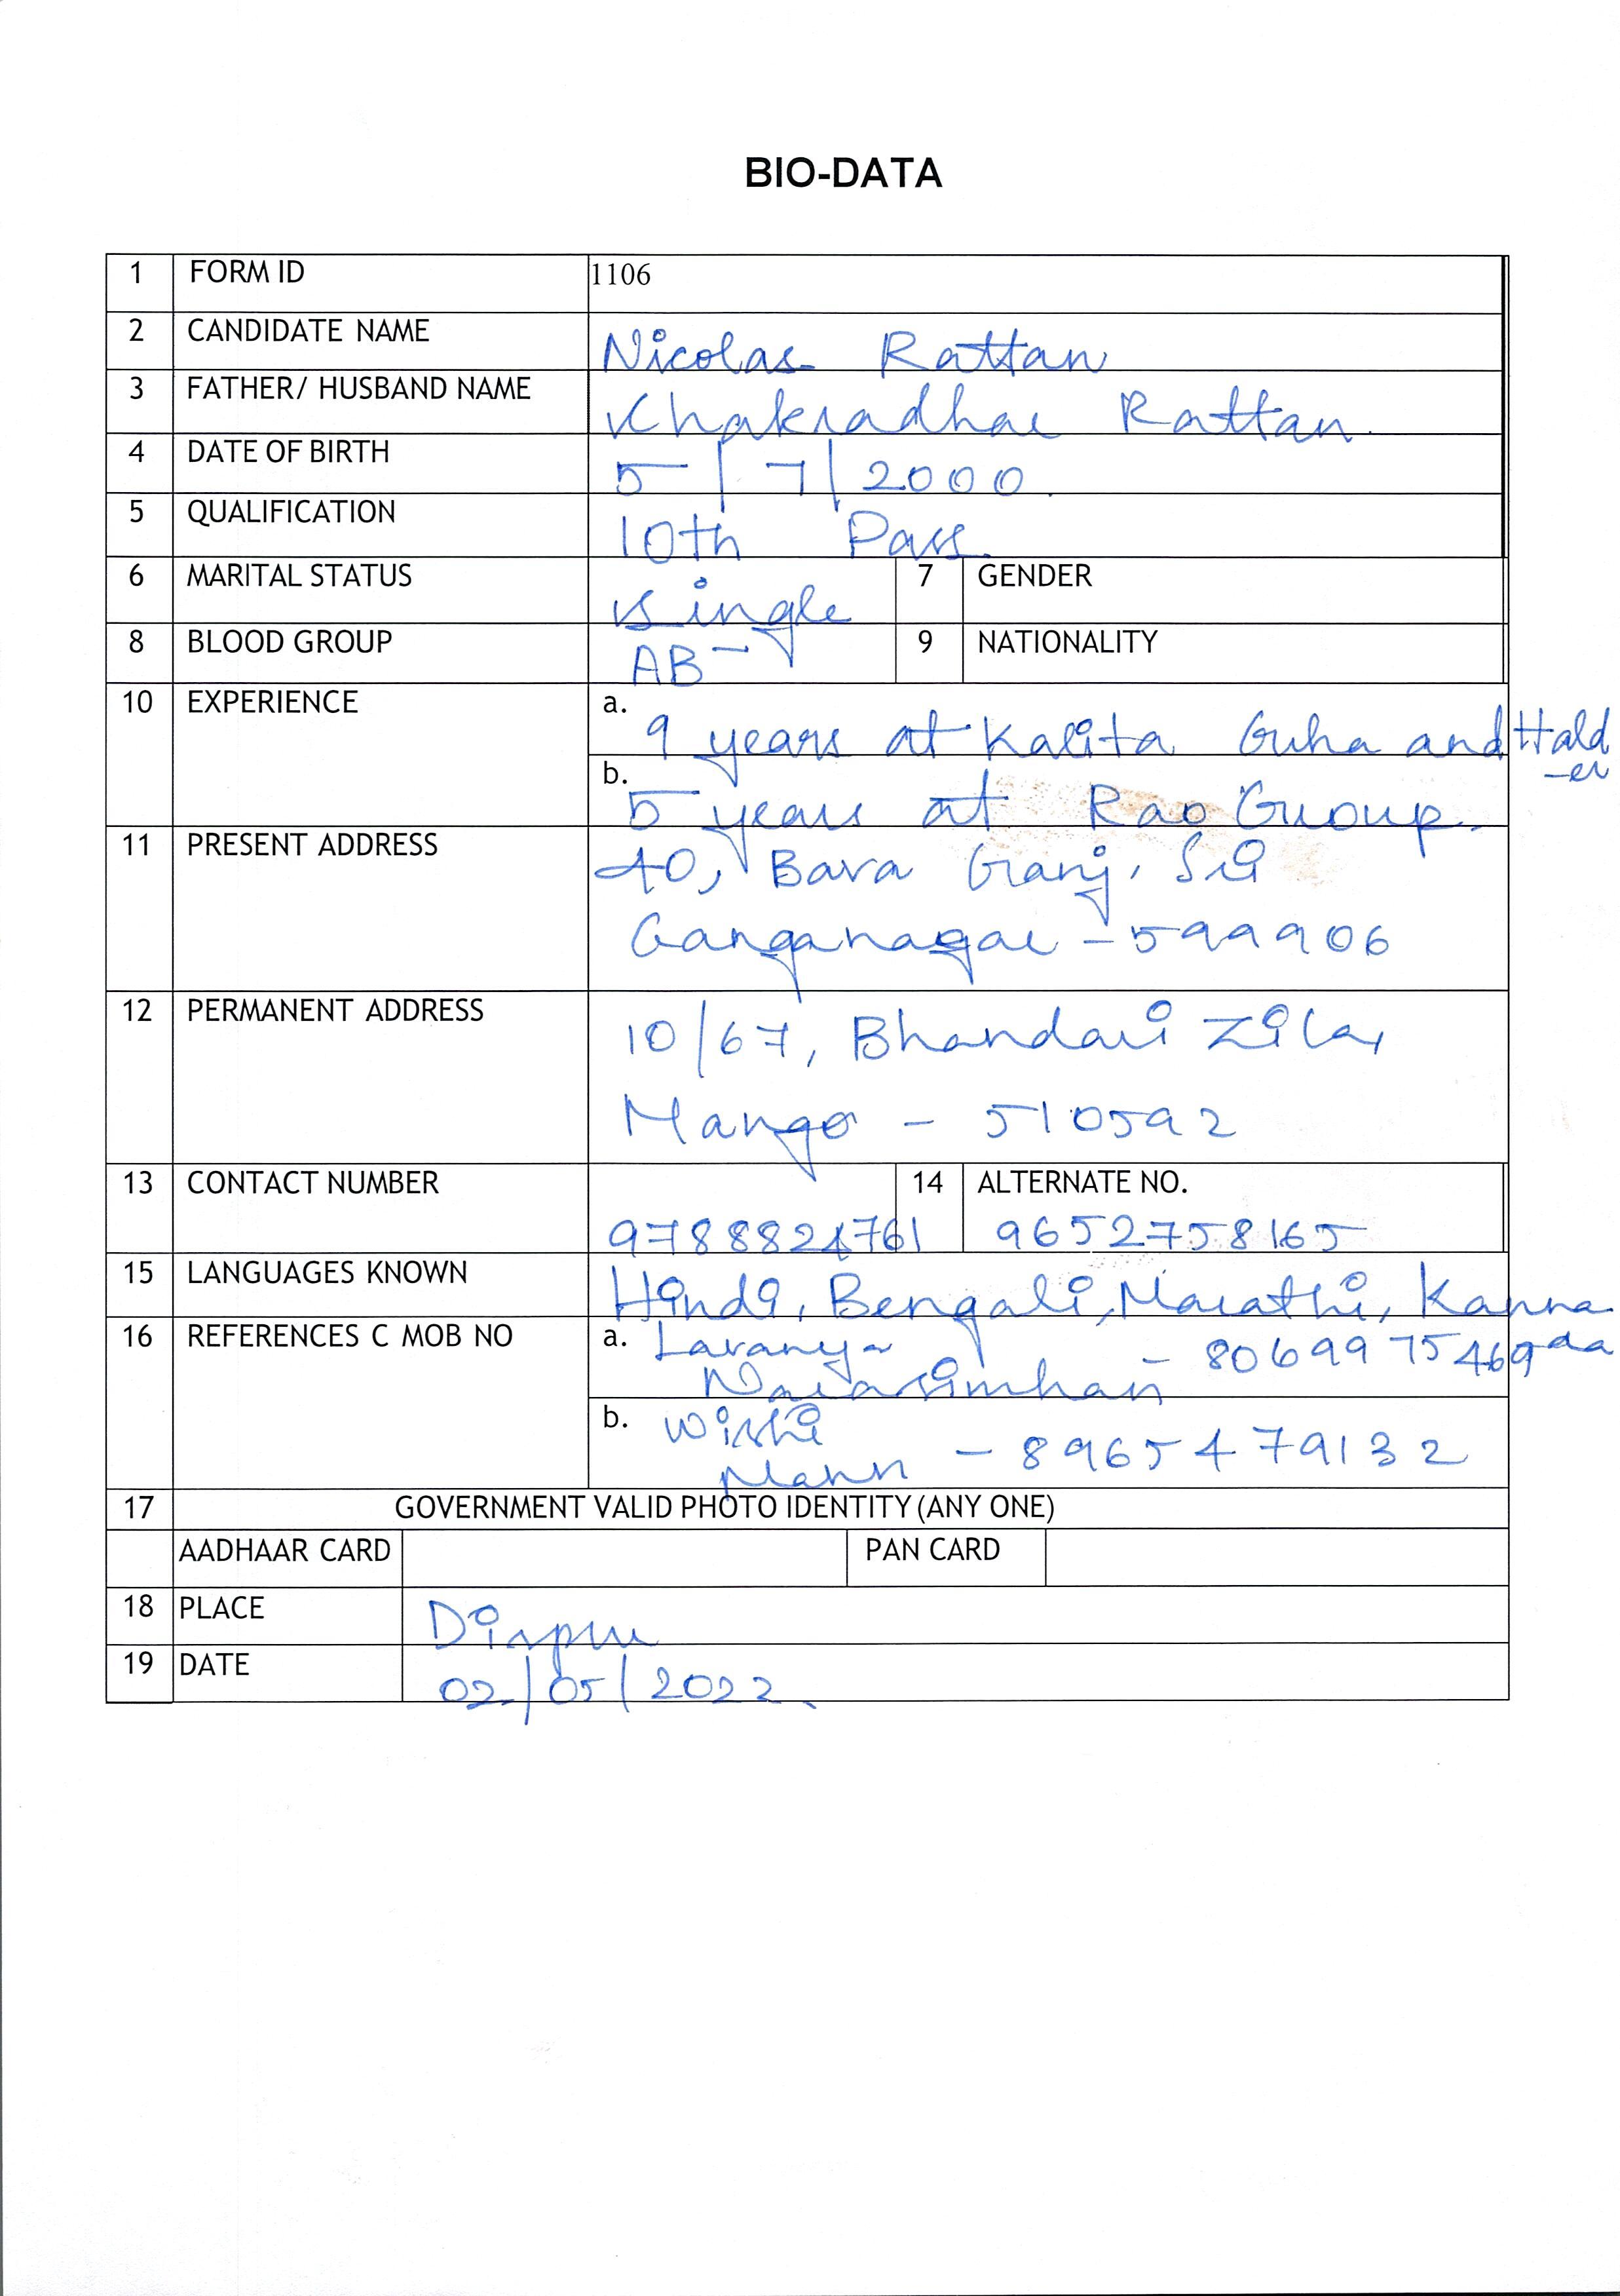 BIO-DATA
1 FORM ID 1106
2 CANDIDATE NAME Nicolas Rattan
3 FATHER/ HUSBAND NAME Khakradhar Rattan
4 DATE OF BIRTH 5/7/2000
5 QUALIFICATION 10th Pass
6 MARITAL STATUS Single 7 GENDER
8 BLOOD GROUP AB- 9 NATIONALITY
10 EXPERIENCE a. 9 years at Kalita Guha and Hald
-er
b. 5 years at Rao Group.
11 PRESENT ADDRESS 40, Bava Ganj, Sri
Ganganagar - 599906
12 PERMANENT ADDRESS 10/67, Bhandari Zila,
Mango - 510592
13 CONTACT NUMBER 9788824761 14 ALTERNATE NO. 9652758165
15 LANGUAGES KNOWN Hindi, Bengali, Marathi, Kanna
da
16 REFERENCES C MOB NO a. Lavanya
Narasimhan - 8069975469
b. Wishi
Mann - 8965479132
17 GOVERNMENT VALID PHOTO IDENTITY (ANY ONE)
AADHAAR CARD PAN CARD
18 PLACE Dispur
19 DATE 02/05/2022.